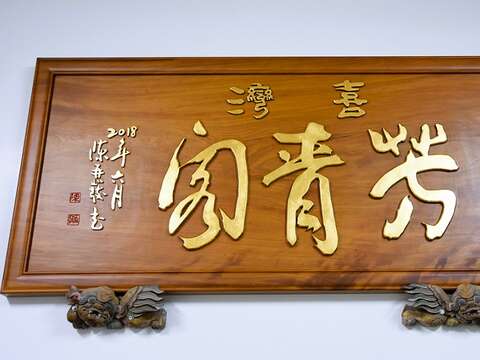 喜灣
芳青閣
2018年六月
陳 書